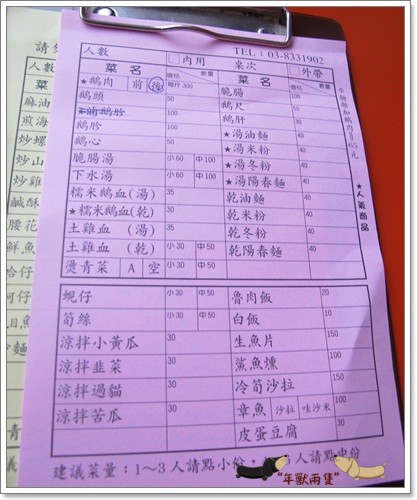 人數 □內用 TEL：03-8331902
桌次 □外帶
菜名 價格 數量 菜名 價格 數量
★鵝肉 前 後 每斤300 脆腸 100
鵝頭 50 鵝尺 50
鵝胗 100 鵝肝 50
鵝心 50 ★湯油麵 40
脆腸湯 小60 中100 ★湯米粉 40
下水湯 小60 中100 ★湯冬粉 40
糯米鵝血(湯) 35 ★湯陽春麵 40
★糯米鵝血(乾) 30 乾油麵 40
土雞血 (湯) 35 乾米粉 40
土雞血 (乾) 小30 中50 乾冬粉 40
燙青菜 A 空 小30 中50 乾陽春麵 40
★人氣商品
蜆仔 小30 中50 魯肉飯 20
筍絲 小30 中50 白飯 10
涼拌小黃瓜 30 生魚片 150
涼拌韭菜 30 鯊魚燻 100
涼拌過貓 30 冷筍沙拉 100
涼拌苦瓜 30 章魚 沙拉 哇沙米 100
皮蛋豆腐 30
建議菜量：1～3人請點小份，
人請點中份
"年獸兩隻"
請
菜
麻油
煎海
炒螺
炒山
炒雞
鹹酥
腰花
鮮魚